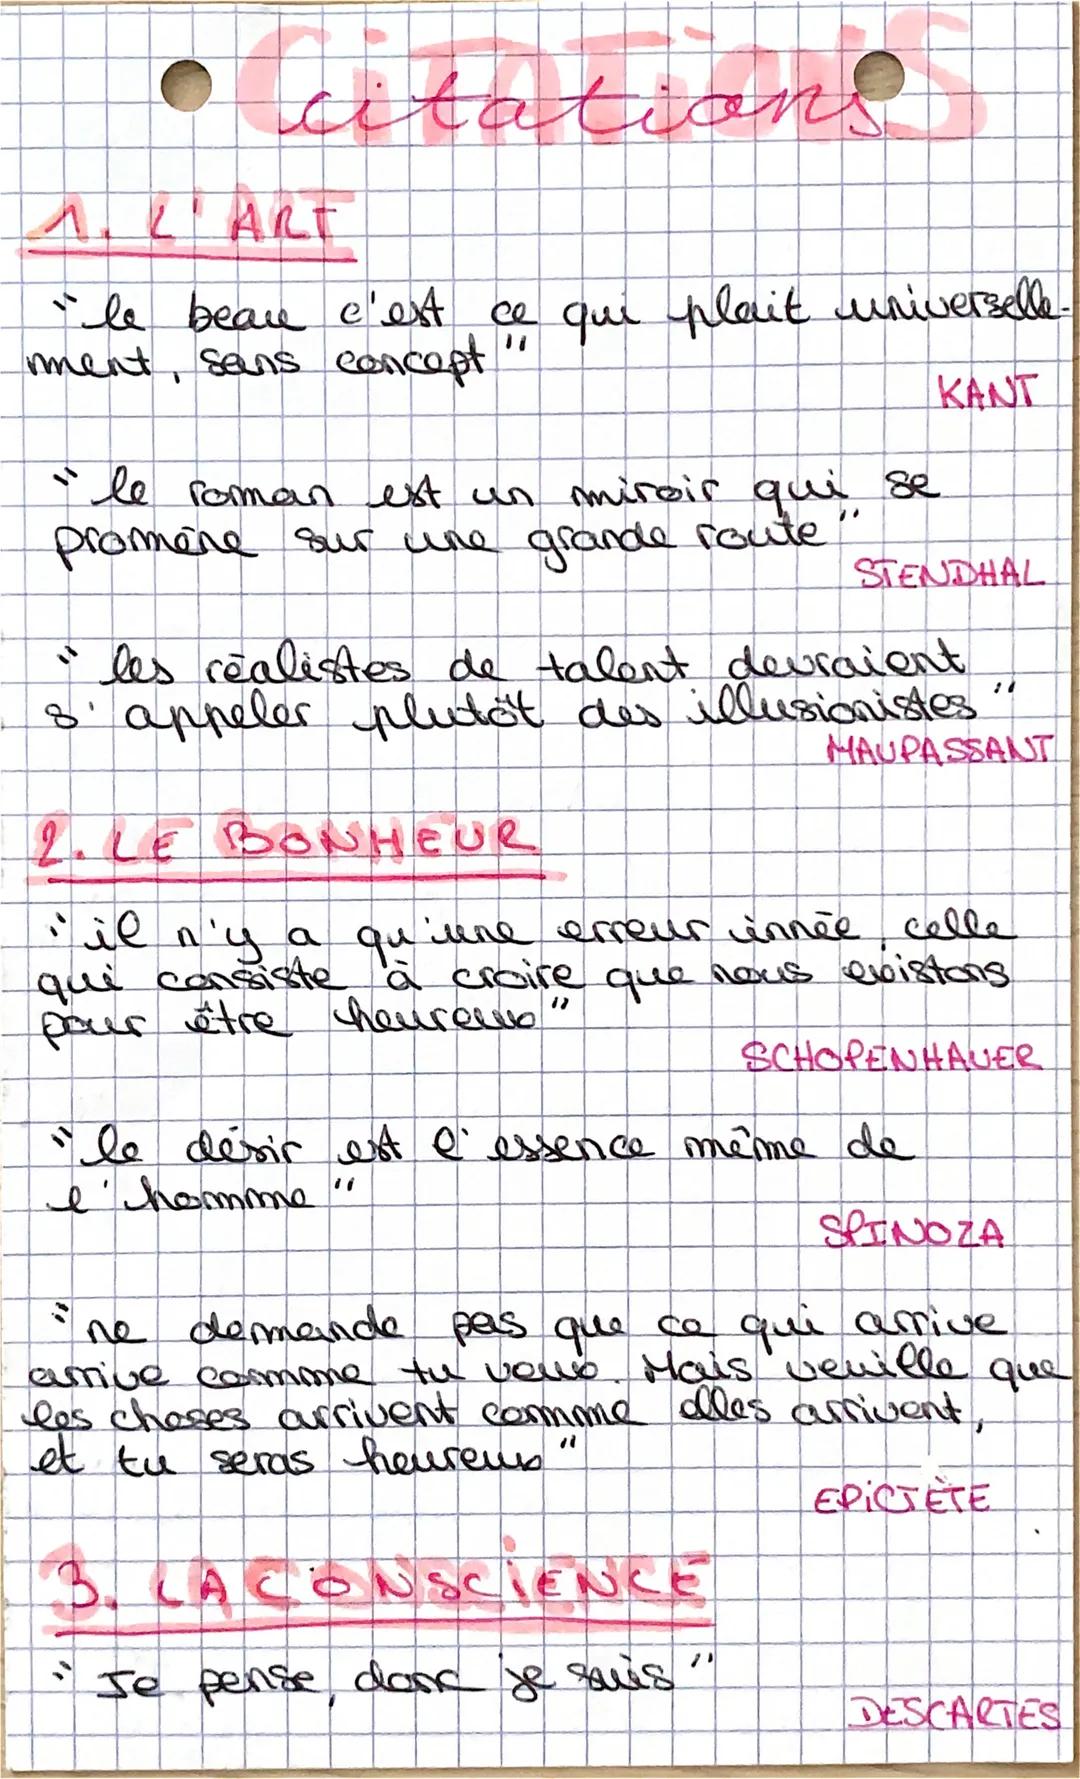 Citations
citations
1. L'ART
"le beau c'est ce qui plait universelle-
ment, sans concept"
KANT
"le roman est un miroir qui se
promène sur une grande route"
STENDHAL
"les réalistes de talent devraient
s'appeler plutôt des illusionistes"
MAUPASSANT
2. LE BONHEUR
"il n'y a qu'une erreur innée, celle
qui consiste à croire que nous existons
pour être heureux"
SCHOPENHAUER
"le désir est l'essence même de
l'homme"
SPINOZA
"ne demande pas que ce qui arrive
arrive comme tu veux. Mais veuille que
les choses arrivent comme elles arrivent,
et tu seras heureux"
EPICTÈTE
3. LA CONSCIENCE
"Je pense, donc je suis"
DESCARTES